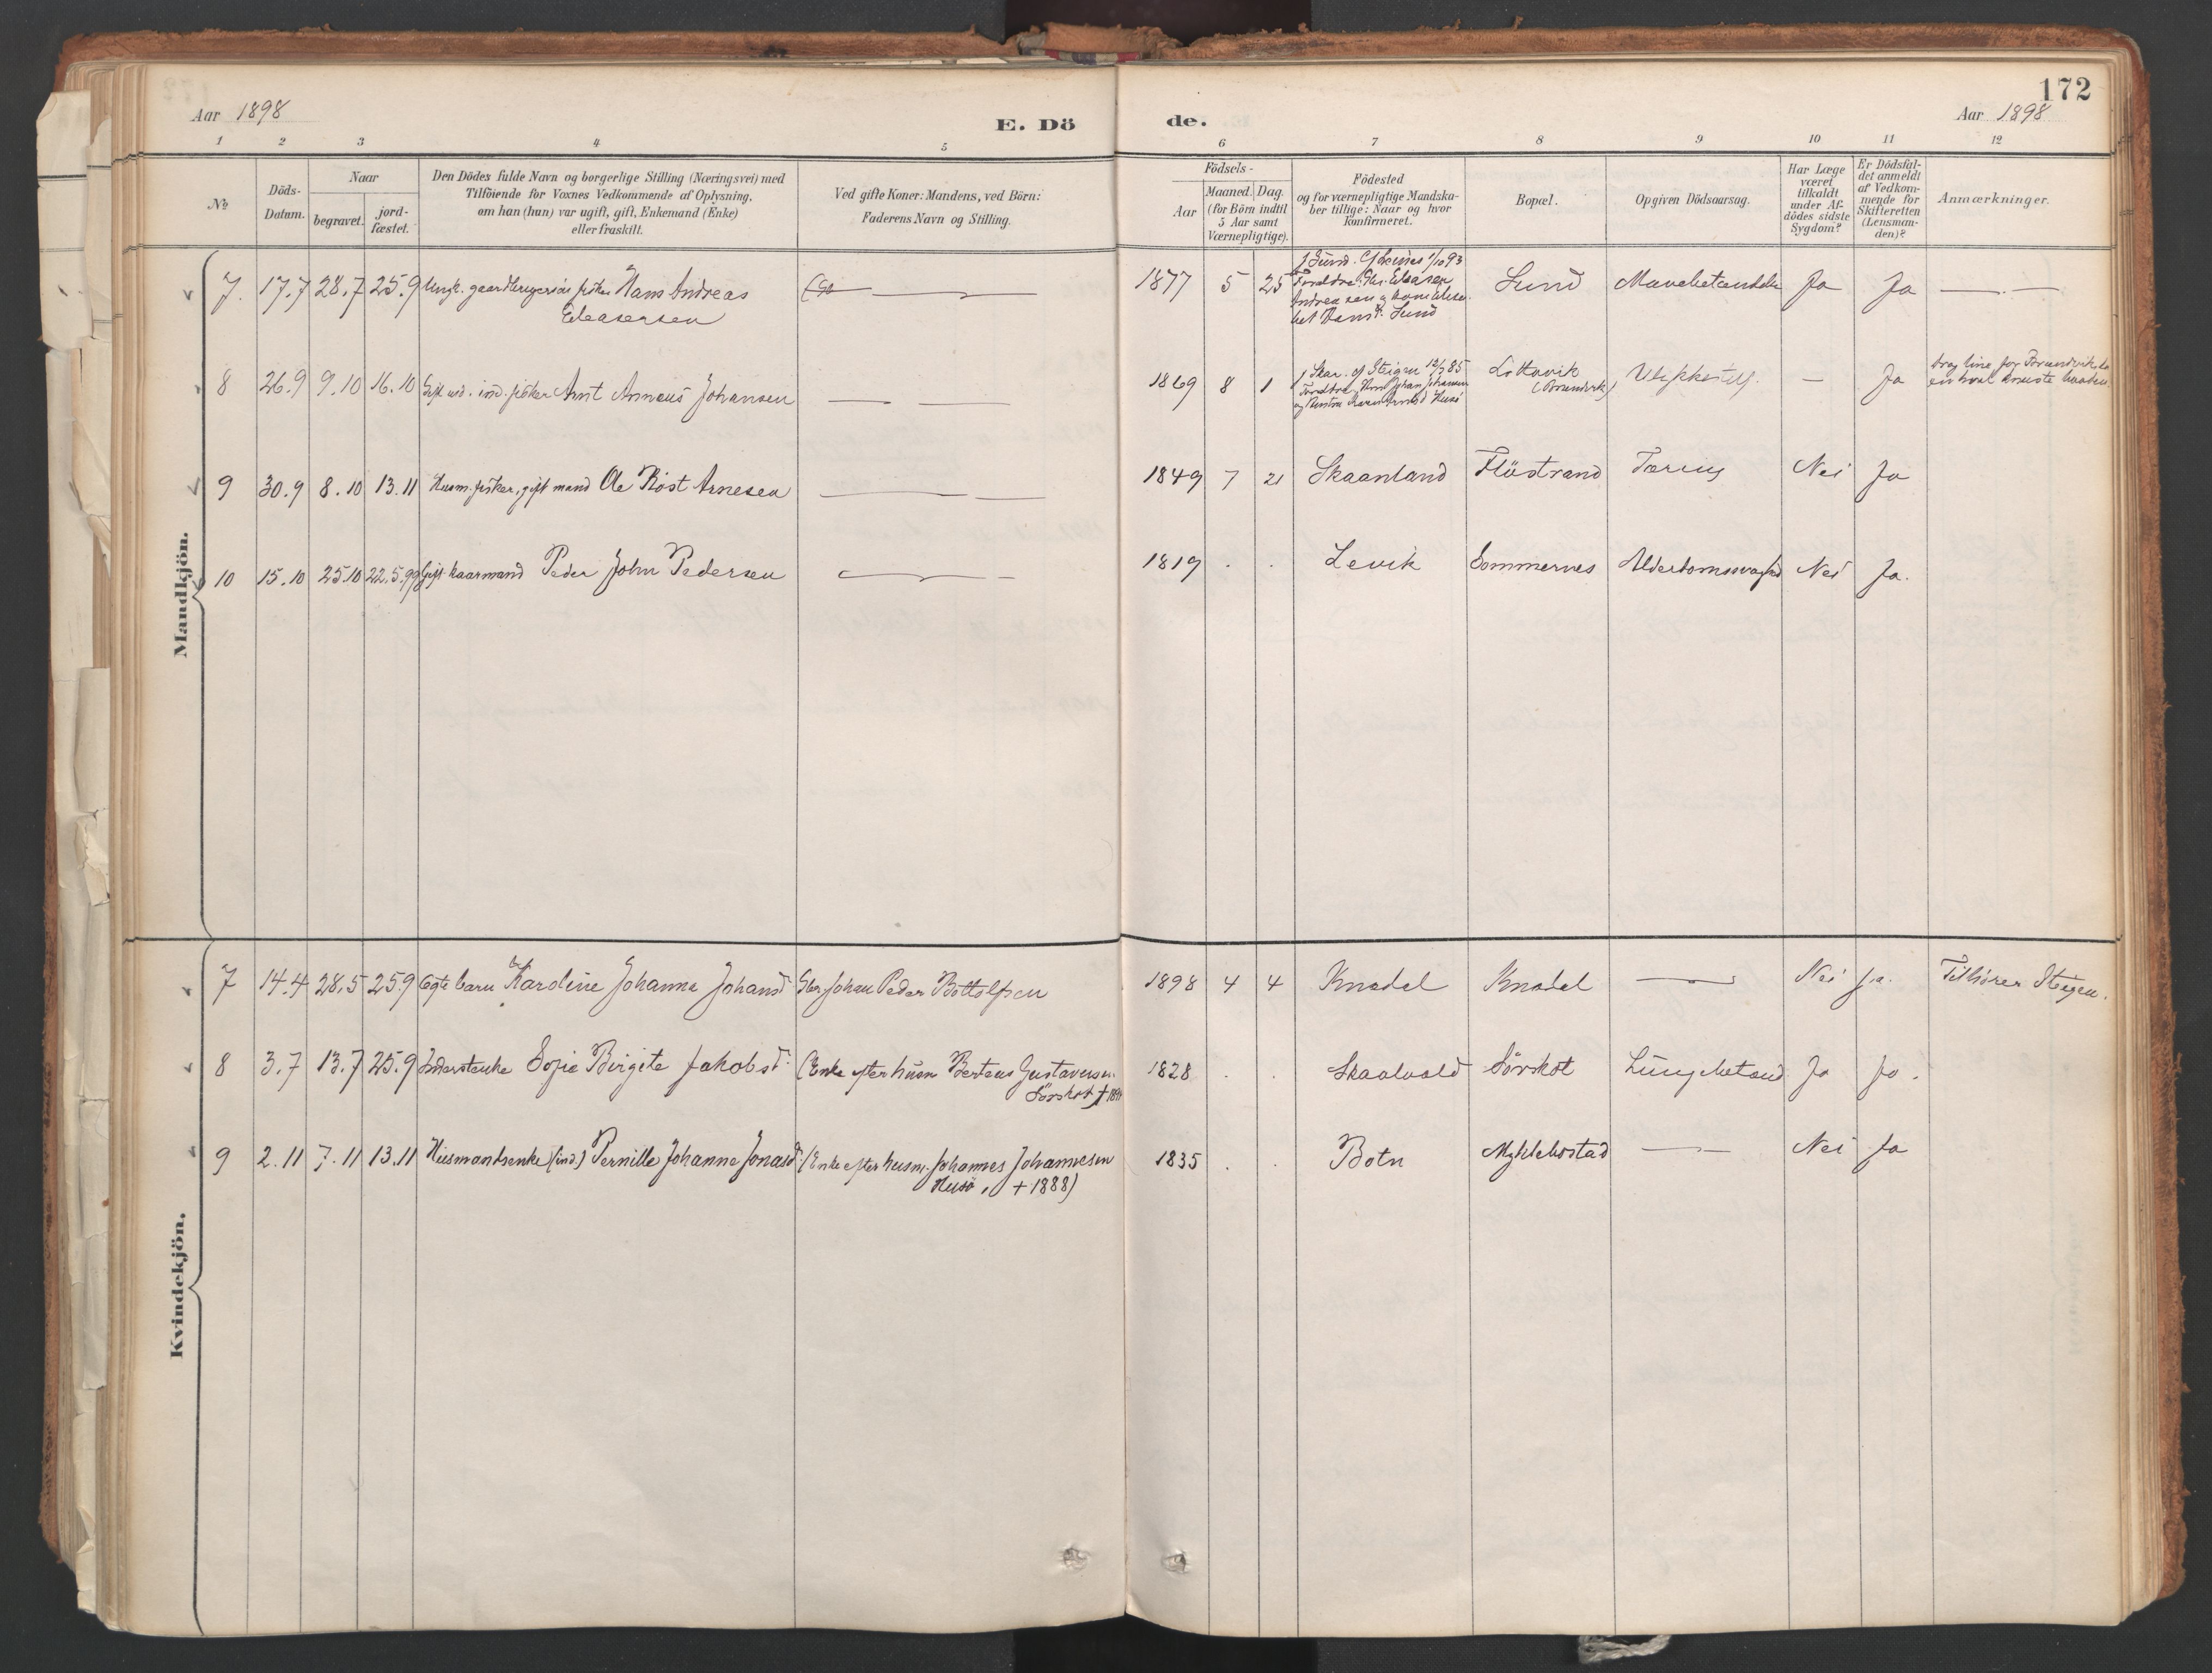 172
Aar 1898
E. Dö
de.
Aar 1898
1 2 3 4 5 6 7 8 9 10 11 12
№
Döds-
Datum.
Naar
begravet.
jord-
fæstet.
Den Dödes fulde Navn og borgerlige Stilling (Næringsvei) med
Tilföiende for Voxnes Vedkommende af Oplysning,
om han (hun) var ugift, gift, Enkemand (Enke)
eller fraskilt.
Ved gifte Koner: Mandens, ved Börn:
Faderens Navn og Stilling.
Födsels-
Aar
Maaned.
Dag.
(for Börn indtil
5 Aar samt
Værnepligtige).
Födested
og for værnepligtige Mandska-
ber tillige: Naar og hvor
konfirmeret.
Bopæl.
Opgiven Dödsaarsag.
Har Læge
været
tilkaldt
under Af-
dödes sidste
Sygdom?
Er Dödsfal-
det anmeldt
af Vedkom-
mende for
Skifteretten
(Lensman-
den)?
Anmærkninger.
Mandkjön.
7. 17.7 28.7 25.9 Ungk. gaardbrugersön fisker Hans Andreas
Eleasersen
1877 5 25
Lund Ja Ja
8 26.9 9.10 16.10 Gift fisker Arnt Anneus Johansen
1869 8 1
Steigen 12/7 85
Lottavik
(Brundvik)
— Ja
9 30.9 8.10 13.11 Husm. fisker, gift mand Ole Röst Arnesen
1849 7 21 Skaanland Flöstrand Tæring Nei Ja
10 15.10 25.10 22.5.99 Gift kaarmand Peder John Pedersen
1819 . . Levik Sommernes Alderdomssvaghed Nei Ja.
Kvindekjön.
7 14.4 28.5 25.9 Ægte barn Karoline Johanna Johansd. Johan Peder Bottolfsen
1898 4 4 Knadal Knadal — Nei Ja. Tilhörer Steigen.
8 3.7 13.7 25.9 Inderstenke Sofie Birgite Jakobsd. (Enke efter husm Berteus Gustavussen
Sörskot
1828 . . Skaalvold Sörskot Lungebetænd. Ja Ja.
9 2.11 7.11 13.11 Husmandsenke (ind.) Pernille Johanna Jonasd. (Enke efter husm. Johannes Johannesen
Husö, + 1888)
1835 . . Botn Myklebostad — Nei Ja